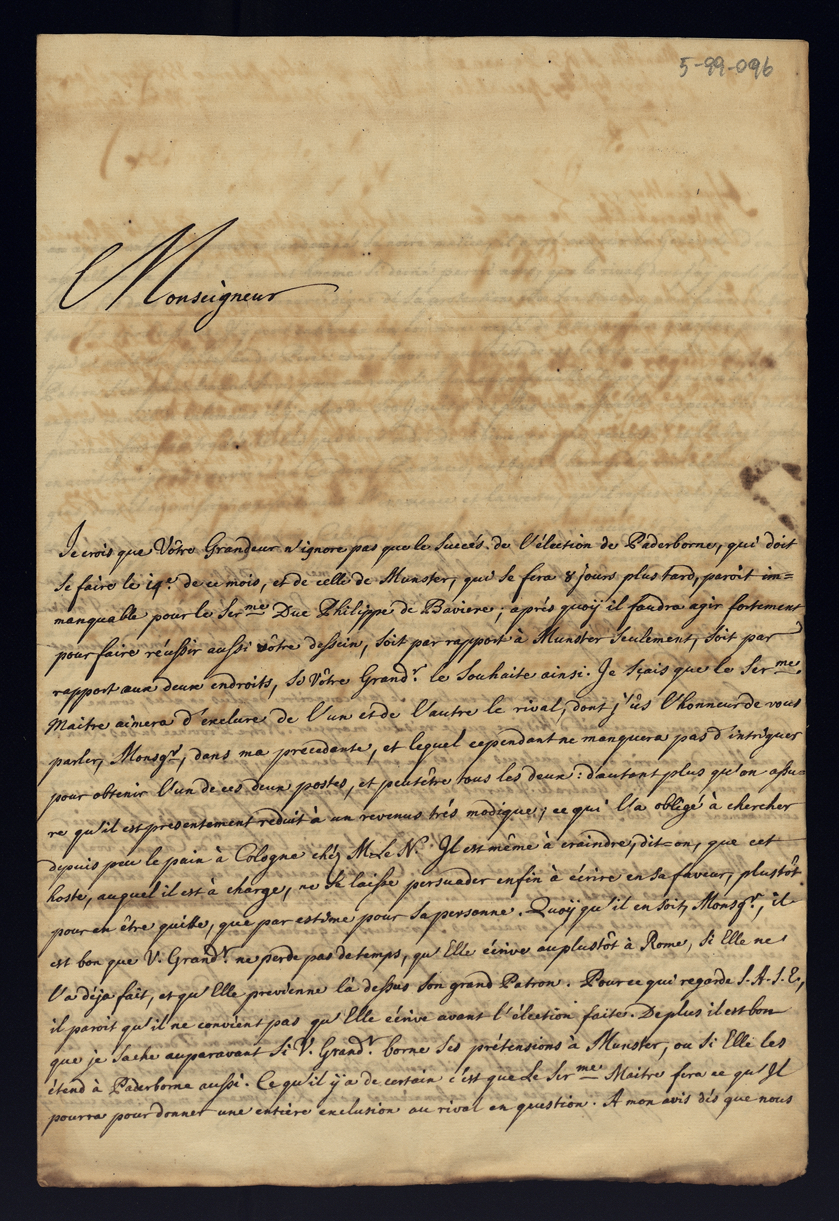 5-99-096
Monseigneur
Je crois que Vôtre Grandeur n'ignore pas que le succés de l'élection de Paderborne, qui doit
se faire le 14.e de ce mois, et de celle de Munster, qui se fera 8 jours plus tard, paroit im=
manquable pour le Ser.me Duc Philippe de Baviere; aprés quoÿ il faudra agir fortement
pour faire réussir aussi vôtre dessein, soit par rapport à Munster seulement, soit par
rapport aux deux endroits, si Vôtre Grand.r le souhaite ainsi. Je sçais que le Ser.me
Maitre aimera d'exclure de l'un et de l'autre le rival, dont j'ûs l'honneur de vous
parler, Monsg.r, dans ma precedente, et lequel cependant ne manquera pas d'intriguer
pour obtenir l'un de ces deux postes, et peutêtre tous les deux: d'autant plus qu'on assu=
re qu'il est presentement reduit à un revenus trés modique; ce qui l'a obligé à chercher
depuis peu le pain à Cologne chéz M. Le N. Il est même à craindre, dit-on, que cet
hoste, auquel il est à charge, ne se laisse persuader enfin à écrire en sa faveur, plustôt
pour en être quitte, que par estime pour sa personne. Quoÿ qu'il en soit, Monsg.r, il
est bon que V. Grand.r ne perde pas de temps, qu'Elle écrive au plustôt à Rome, si Elle ne
l'a déja fait, et qu'Elle previenne là dessus son grand Patron. Pour ce qui regarde S.A.S.E,
il paroit qu'il ne convient pas qu'Elle écrive avant l'élection faite. De plus il est bon
que je sache auparavant si V. Grand.r borne ses prétensions à Munster, ou si Elle les
étend à Paderborne aussi. Ce qu'il ÿ a de certain c'est que Le Ser.me Maitre fera ce qu'Il
pourra pour donner une entiére exclusion au rival en question. A mon avis dés que nous